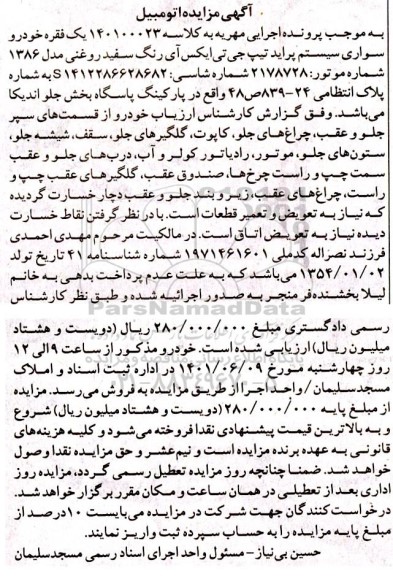 آگهی مزایده اتومبیل
به موجب پرونده اجرایی مهریه به کلاسه ۱۴۰۱۰۰۰۲۳ یک فقره خودرو
سواری سیستم پراید تیپ جی تی ایکس آی رنگ سفید روغنی مدل ۱۳۸۶
شماره موتور: ۲۱۷۸۷۲۸ شماره شاسی: S۱۴۱۲۲۸۶۶۲۸۶۸۲ به شماره
پلاک انتظامی ۲۴-۸۳۹ص۴۸ واقع در پارکینگ پاسگاه بخش جلو اندیکا
می‌باشد. وفق گزارش کارشناس ارزیاب خودرو از قسمت‌های سپر
جلو و عقب، چراغ‌های جلو، کاپوت، گلگیرهای جلو، سقف، شیشه جلو،
ستون‌های جلو، موتور، رادیاتور کولر و آب، درب‌های جلو و عقب
سمت چپ و راست چرخ‌ها، صندوق عقب، گلگیرهای عقب چپ و
راست، چراغ‌های عقب، زیر و بند جلو و عقب دچار خسارت گردیده
که نیاز به تعویض و تعمیر قطعات است. با در نظر گرفتن نقاط خسارت
دیده نیاز به تعویض اتاق است. در مالکیت مرحوم مهدی احمدی
فرزند نصراله کدملی ۱۹۷۱۴۶۱۶۰۱ شماره شناسنامه ۴۱ تاریخ تولد
۱۳۵۴/۰۱/۰۲ می‌باشد که به علت عدم پرداخت بدهی به خانم
لیلا بخشنده‌فر منجر به صدور اجرائیه شده و طبق نظر کارشناس
رسمی دادگستری مبلغ ۲۸۰/۰۰۰/۰۰۰ ریال (دویست و هشتاد
میلیون ریال) ارزیابی شده است. خودرو مذکور از ساعت ۹ الی ۱۲
روز چهارشنبه مورخ ۱۴۰۱/۰۶/۰۹ در اداره ثبت اسناد و املاک
مسجدسلیمان / واحد اجرا از طریق مزایده به فروش می‌رسد. مزایده
از مبلغ پایه ۲۸۰/۰۰۰/۰۰۰ (دویست و هشتاد میلیون ریال) شروع
و به بالاترین قیمت پیشنهادی نقدا فروخته می‌شود و کلیه هزینه‌های
قانونی به عهده برنده مزایده است و نیم‌عشر و حق مزایده نقدا وصول
خواهد شد. ضمنا چنانچه روز مزایده تعطیل رسمی گردد، مزایده روز
اداری بعد از تعطیلی در همان ساعت و مکان مقرر برگزار خواهد شد.
درخواست کنندگان جهت شرکت در مزایده می‌بایست ۱۰درصد از
مبلغ پایه مزایده را به حساب سپرده ثبت واریز نمایند.
حسین بی‌نیاز - مسئول واحد اجرای اسناد رسمی مسجدسلیمان
ParsNamadData